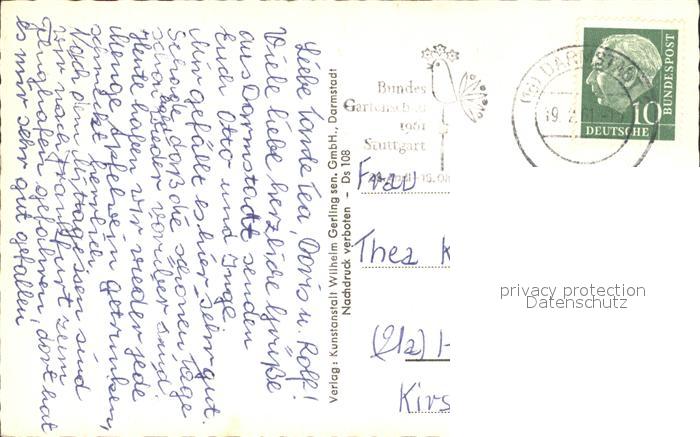 Liebe Tante Tea, Doris u. Rolf!
Viele liebe herzliche Grüße
aus Darmstadt senden
Euch Otto und Inge.
Mir gefällt es hier sehr gut.
Schade, daß die schönen Tage
schon wieder vorüber sind.
Heute haben wir wieder jede
Menge Apfelwein getrunken,
schmeckt herrlich.
Nach dem Mittagessen sind
wir nach Frankfurt zum
Flughafen gefahren, dort hat
es mir sehr gut gefallen
Verlag: Kunstanstalt Wilhelm Gerling sen. GmbH., Darmstadt
Nachdruck verboten – Ds 108
Bundes
Gartenschau
1961
Stuttgart
(16) DARMSTADT
10
DEUTSCHE
BUNDESPOST
Frau
Thea K
(21a) H
Kirs
privacy protection
Datenschutz